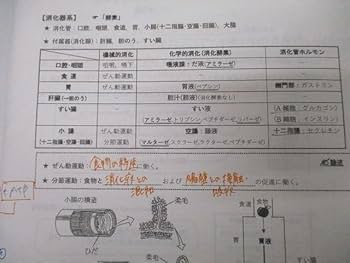 【消化器系】 ☞「酵素」
★ 消化管：口腔、咽頭、食道、胃、小腸(十二指腸・空腸・回腸)、大腸
★ 付属器(消化腺)：肝臓、胆のう、すい臓
機械的消化 化学的消化(消化酵素) 消化管ホルモン
口腔・咽頭 咀嚼、嚥下 唾液腺：だ液(アミラーゼ)
食道 ぜん動運動
胃 ぜん動運動 胃液(ペプシン) 幽門部：ガストリン
肝臓(→胆のう) 胆汁(消化酵素なし)
すい臓 すい液 (A細胞：グルカゴン)
(アミラーゼ、トリプシン、ペプチダーゼ、リパーゼ) (B細胞：インスリン)
小腸 ぜん動運動 空腸：腸液 十二指腸：セクレチン
(十二指腸・空腸・回腸) 分節運動 (マルターゼ、スクラーゼ、ラクターゼ、ペプチダーゼ)
★ ぜん動運動：食物の移送に働く。
★ 分節運動：食物と消化液との混和 および 腸壁との接触、吸収 の促進に働く。
小腸の構造 柔毛 柔毛
ひだ
食道 食物
胃
胃液